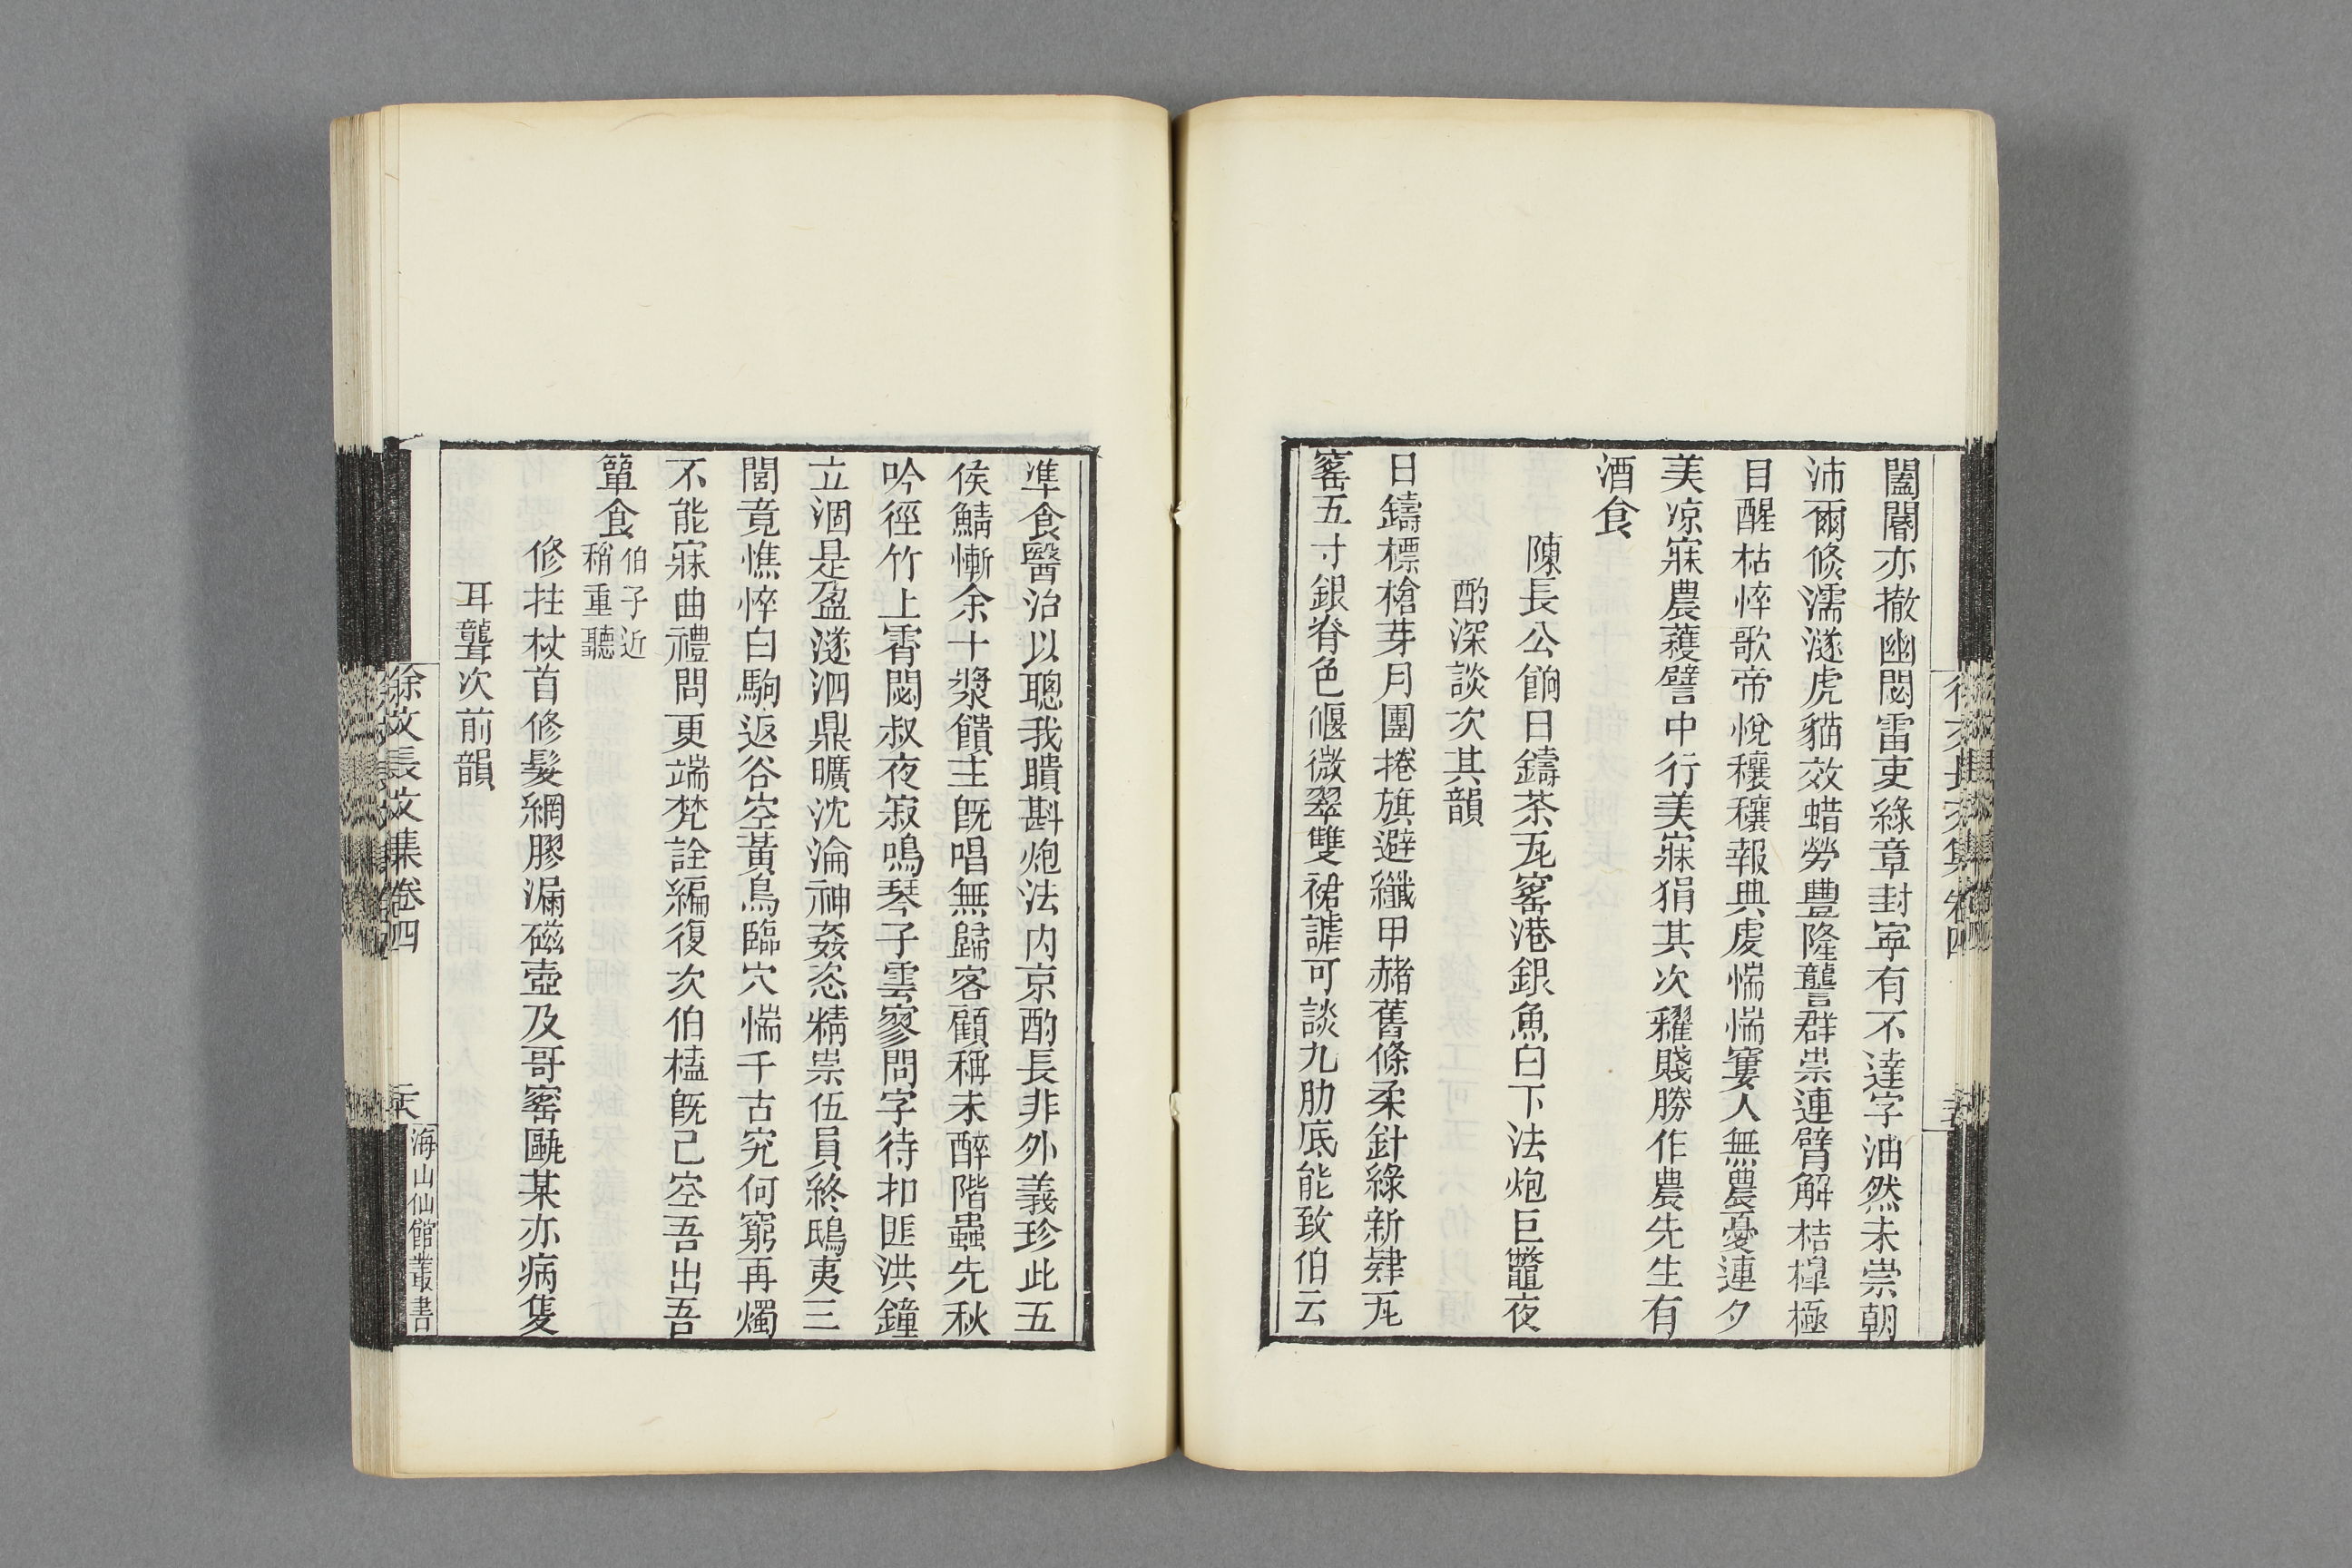 闔闢亦撤幽閟雷吏綠章封寧有不達字油然未崇朝
沛爾倏濡邃虎貓效蜡勞豐隆讋群祟連臂解桔橰極
目醒枯悴歌帝悅穰穰報典虔惴惴窶人無農憂連夕
美凉寐農蘐譬中行美寐狷其次糴賤勝作農先生有
酒食
陳長公餉日鑄茶瓦窰港銀魚白下法炮巨鼈夜
酌深談次其韻
日鑄標槍芽月團捲旗避纖甲赭舊條柔針綠新肄瓦
窰五寸銀脊色偃微翠雙裙謔可談九肋底能致伯云
準食醫治以聰我聵斟炮法內京酌長非外義珍此五
侯鯖慚余十漿饋主既唱無歸客顧稱未醉階蟲先秋
吟徑竹上霄閟叔夜寂鳴琴子雲寥問字待扣匪洪鐘
立涸是盈邃泗鼎曠沈淪神姦恣精祟伍員終鴟夷三
閭竟憔悴白駒返谷空黃鳥臨穴惴千古究何窮再燭
不能寐曲禮問更端梵詮編復次伯榼既已空吾出吾
簞食伯子近稍重聽
修拄杖首修髮網膠漏磁壺及哥窰甌某亦病隻
耳聾次前韻
徐文長文集卷四
海山仙館叢書